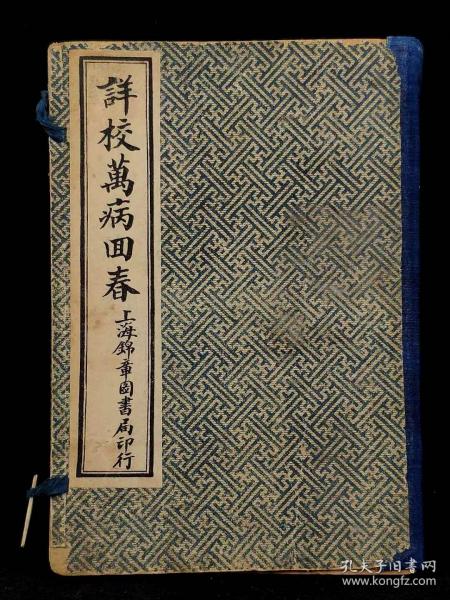 詳校萬病回春
上海錦章圖書局印行
孔夫子旧书网
www.kongfz.com